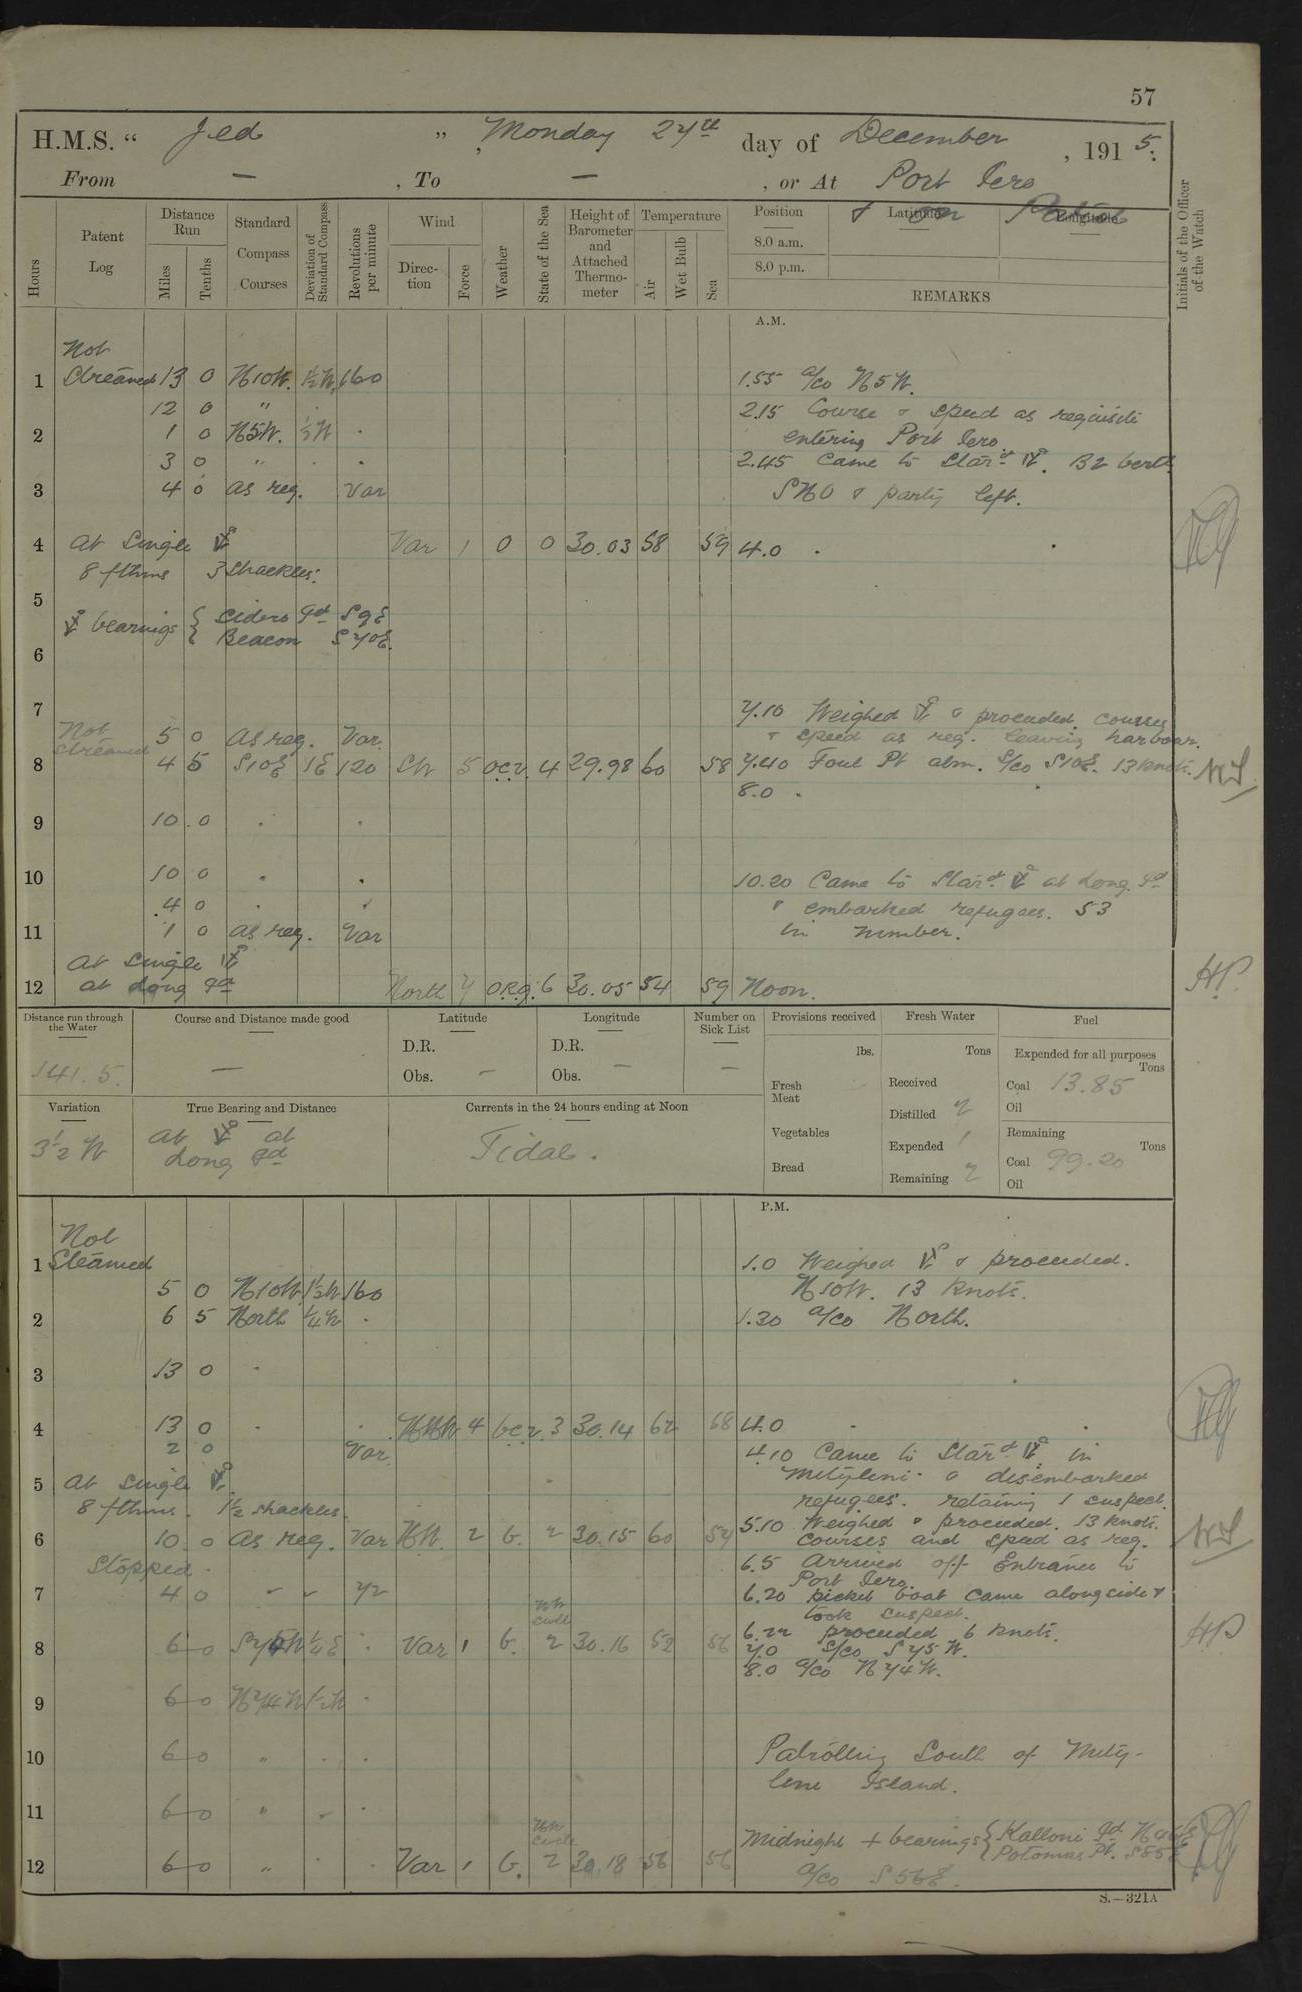 57
H.M.S. " Jed " , Monday 27th day of December , 1915.
From — , To — , or At Port Iero
& on Patrol
Hours
Patent Log
Distance Run
Miles
Tenths
Standard Compass Courses
Deviation of Standard Compass
Revolutions per minute
Wind
Direction
Force
Weather
State of the Sea
Height of Barometer and Attached Thermometer
Temperature
Air
Wet Bulb
Sea
Position
Latitude
Longitude
8.0 a.m.
8.0 p.m.
REMARKS
Initials of the Officer of the Watch
A.M.
Not
1 Streamed 13 0 N10W. 1½W. 160 1.55 a/co N5W.
12 0 " 2.15 Course & speed as requisite
2 1 0 N5W. ½W . entering Port Iero.
3 0 " . . 2.45 Came to Star^d ⚓. B2 berth
3 4 0 as req. Var SNO & party left.
4 At Single ⚓ Var 1 0 0 30.03 58 59 4.0 . .
8 fthms 3 shackles.
5
⚓ bearings { Sidero I^d S9E
6 { Beacon S70E.
7 7.10 Weighed ⚓ & proceeded. Courses
Not 5 0 As req. Var. & speed as req. leaving harbour.
Streamed
8 4 5 S10E 1E 120 SW 5 ocr. 4 29.98 60 58 7.40 Foul Pt abm. S/co S10E. 13 knots.
8.0 . .
9 10 0 . .
10 10 0 . . 10.20 Came to Star^d ⚓ at Long I^d
4 0 . . & embarked refugees. 53
11 1 0 as req. Var in number.
At Single ⚓
12 at Long I^d North 7 o.r.q. 6 30.05 54 59 Noon.
Distance run through the Water
141.5.
Course and Distance made good
—
Latitude
D.R.
Obs. —
Longitude
D.R.
Obs. —
Number on Sick List
—
Provisions received
lbs.
Fresh Meat
Vegetables
Bread
Fresh Water
Tons
Received
Distilled 2
Expended 1
Remaining 7
Fuel
Expended for all purposes
Tons
Coal 13.85
Oil
Remaining
Tons
Coal 99.20
Oil
Variation
3½ W
True Bearing and Distance
At ⚓ at
Long I^d
Currents in the 24 hours ending at Noon
Tidal.
P.M.
Not
1 Streamed 1.0 Weighed ⚓ & proceeded.
5 0 N10W 1½W 160 N10W. 13 knots.
2 6 5 North ¼W . 1.30 a/co North.
3 13 0 " .
4 13 0 . . NNW 4 bcr. 3 30.14 62 58 4.0 . .
2 0 Var. 4.10 Came to Star^d ⚓ in
5 At Single ⚓. Mityleni. & disembarked
8 fthms. 1½ shackles. refugees. retaining 1 suspect.
5.10 Weighed & proceeded. 13 knots.
6 10 0 As req. Var NW. 2 b. 2 30.15 60 57 Courses and speed as req.
Stopped. 6.5 Arrived off Entrance to
Port Iero.
7 4 0 " " 72 6.20 picket boat came alongside &
took suspect.
NW swell 6.22 proceeded 6 knots.
8 6 0 S75W ¼E . Var 1 b. 2 30.16 52 56 7.0 S/co S75W.
8.0 a/co N74W.
9 6 0 N74W ½W .
10 6 0 " . . Patrolling South of Mity-
lene Island.
11 6 0 " " .
Midnight + bearings { Kalloni I^d
{ Potomas Pt. S85E
12 6 0 " . . Var 1 b. 2 30.18 56 56 a/co S56E.
S.—321A